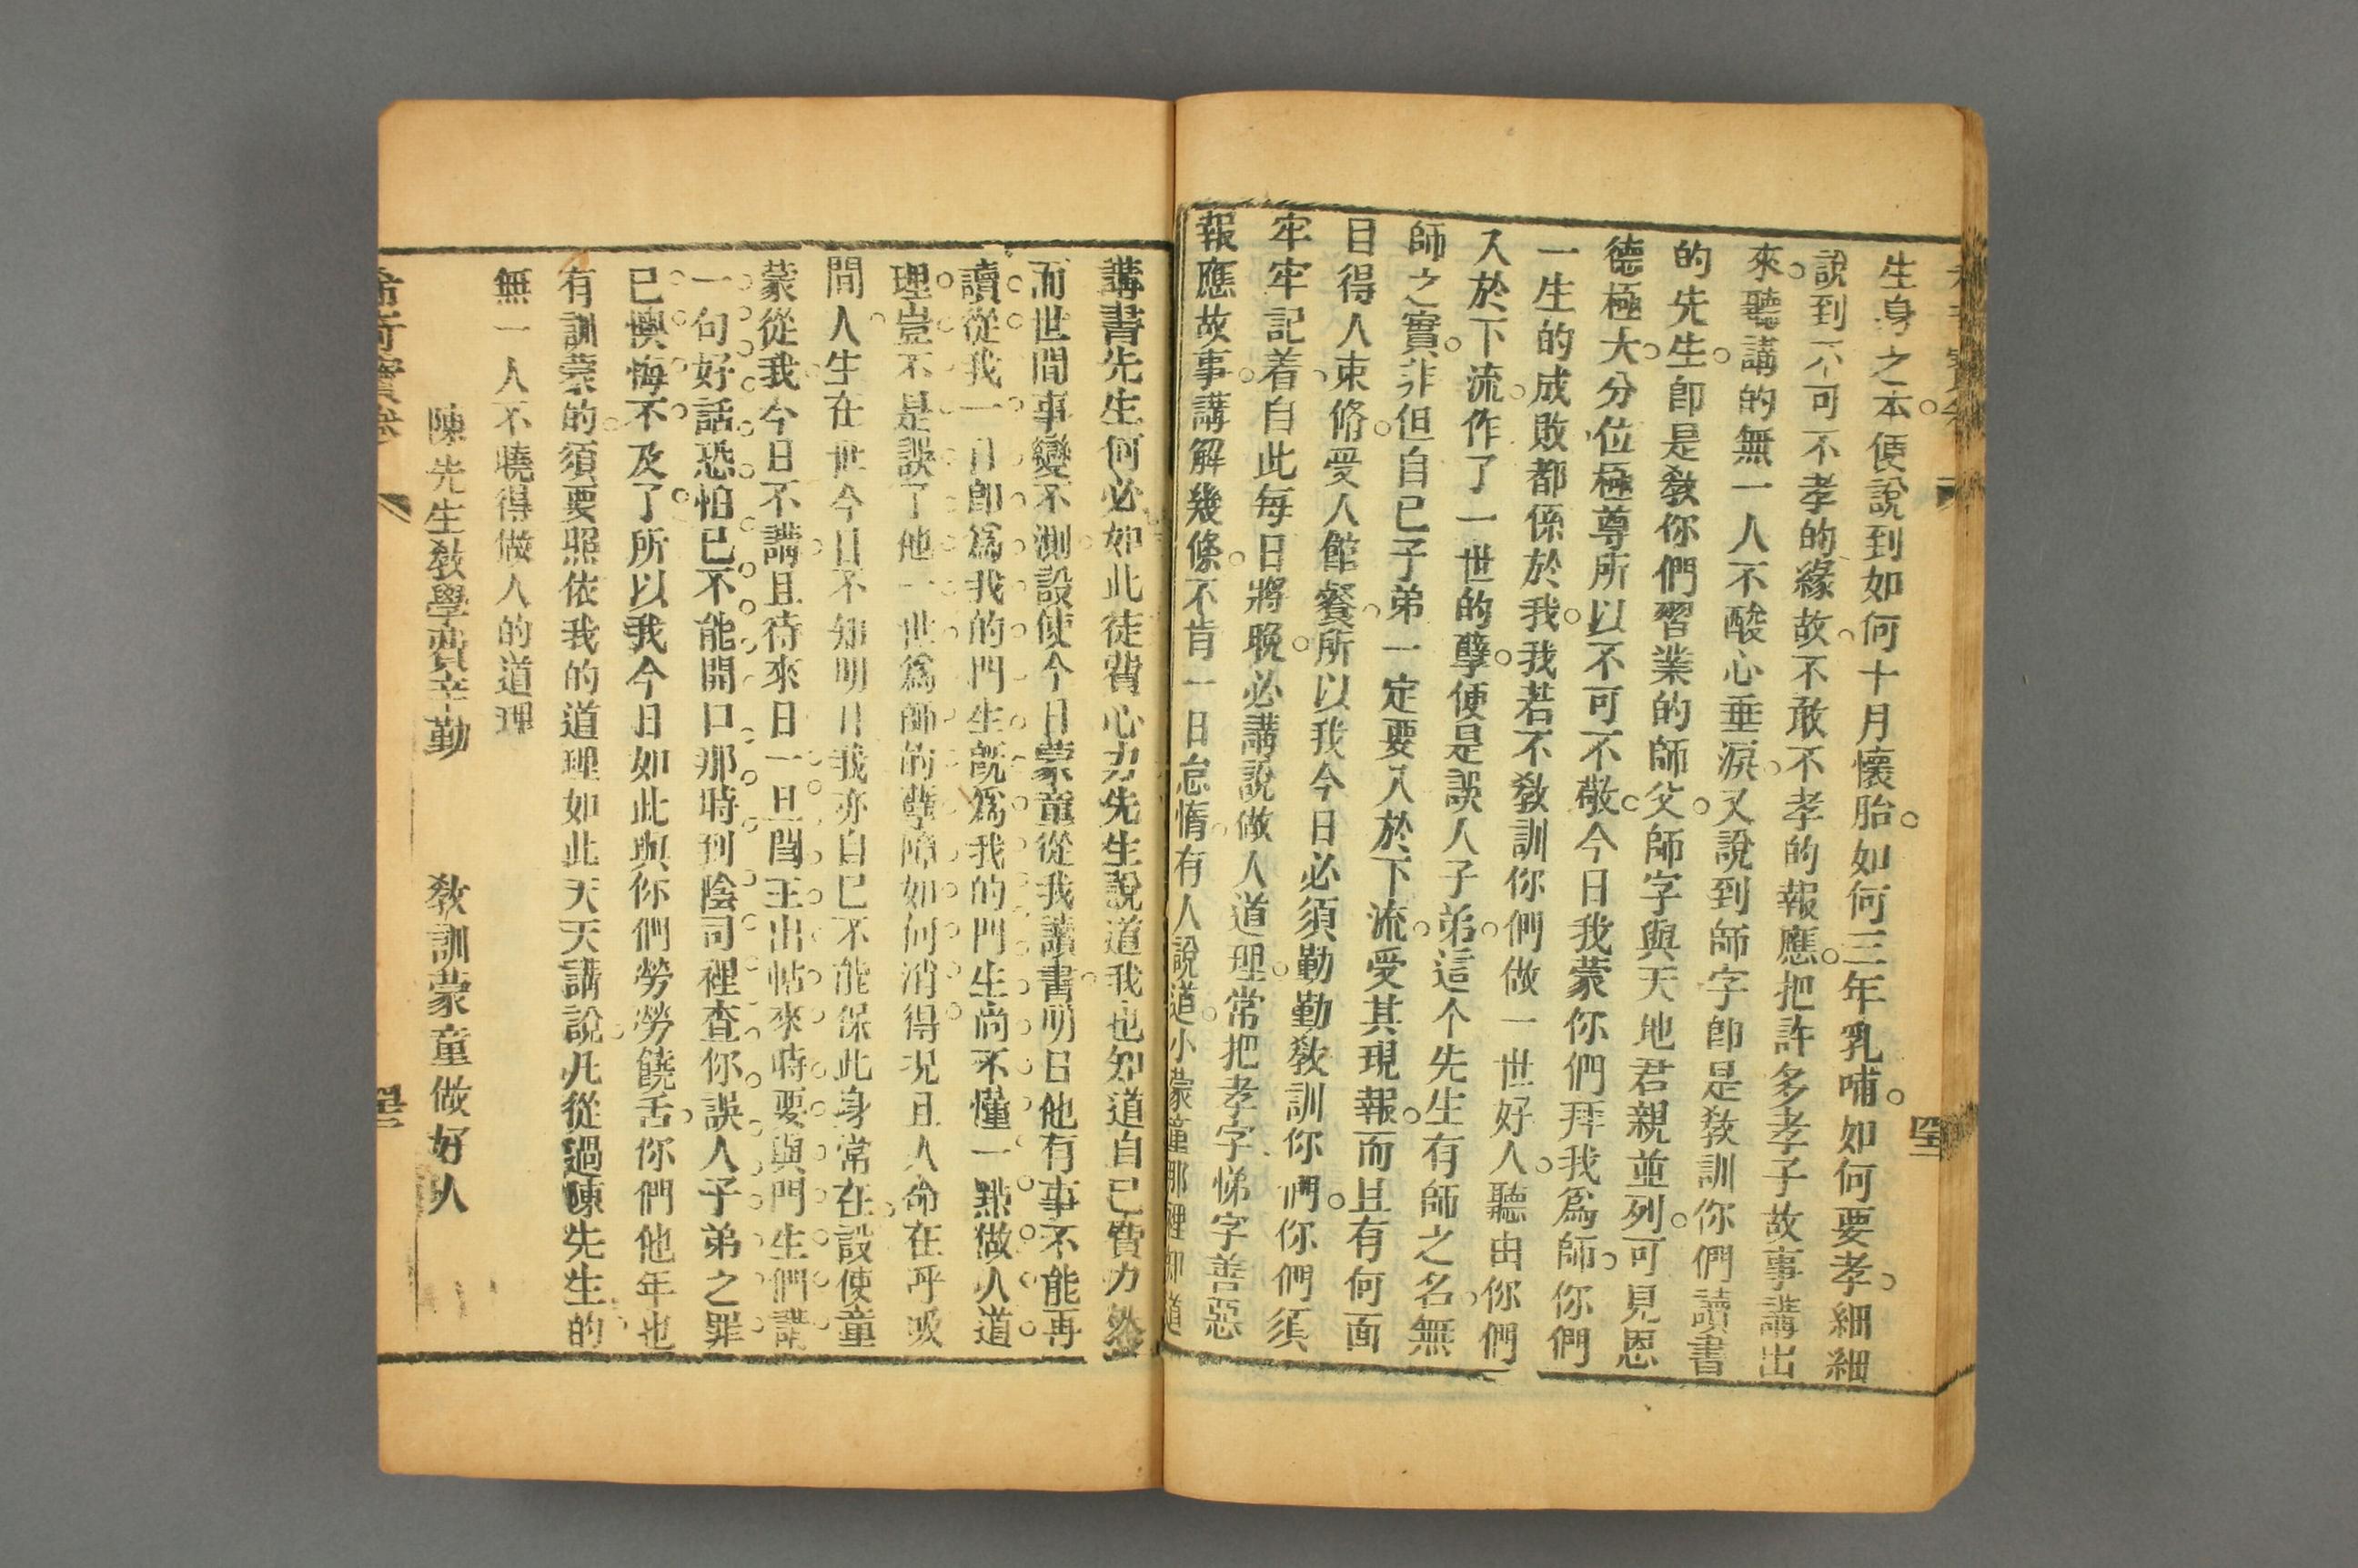 生身之本便說到如何十月懷胎如何三年乳哺如何要孝細細
說到不可不孝的緣故不敢不孝的報應把許多孝子故事講出
來聽講的無一人不酸心垂淚又說到師字卽是敎訓你們讀書
的先生卽是敎你們習業的師父師字與天地君親並列可見恩
德極大分位極尊所以不可不敬今日我蒙你們拜我爲師你們
一生的成敗都係於我我若不敎訓你們做一世好人聽由你們
入於下流作了一世的孽便是誤人子弟這个先生有師之名無
師之實非但自已子弟一定要入於下流受其現報而且有何面
目得人束脩受人館餐所以我今日必須勤勤敎訓你們你們須
牢牢記着自此每日將晚必講說做人道理常把孝字悌字善惡
報應故事講解幾條不肯一日怠惰有人說道小蒙童那裡知道
講書先生何必如此徒費心力先生說道我也知道自已費力然
而世間事變不測設使今日蒙童從我讀書明日他有事不能再
讀從我一日卽爲我的門生旣爲我的門生尚不懂一點做人道
理豈不是誤了他一世爲師的孽障如何消得況且人命在呼吸
間人生在世今日不知明日我亦自已不能保此身常在設使童
蒙從我今日不講且待來日一旦閻王出帖來時要與門生們講
一句好話恐怕已不能開口那時到陰司裡查你誤人子弟之罪
已懊悔不及了所以我今日如此與你們勞勞饒舌你們他年也
有訓蒙的須要照依我的道理如此天天講說凡從過陳先生的
無一人不曉得做人的道理
陳先生敎學費辛勤　敎訓蒙童做好人
希奇寶卷